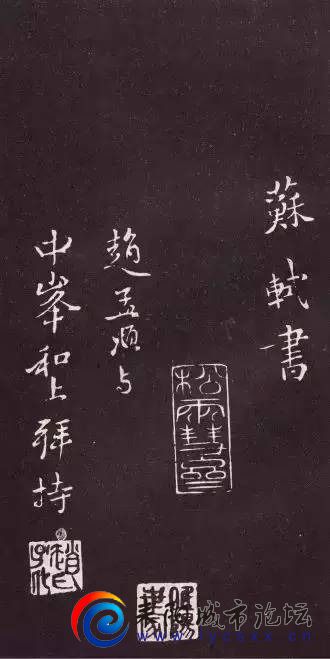 蘇軾書
松雪齋
趙孟頫与
中峯和上拜持
趙氏子昂
城市论坛